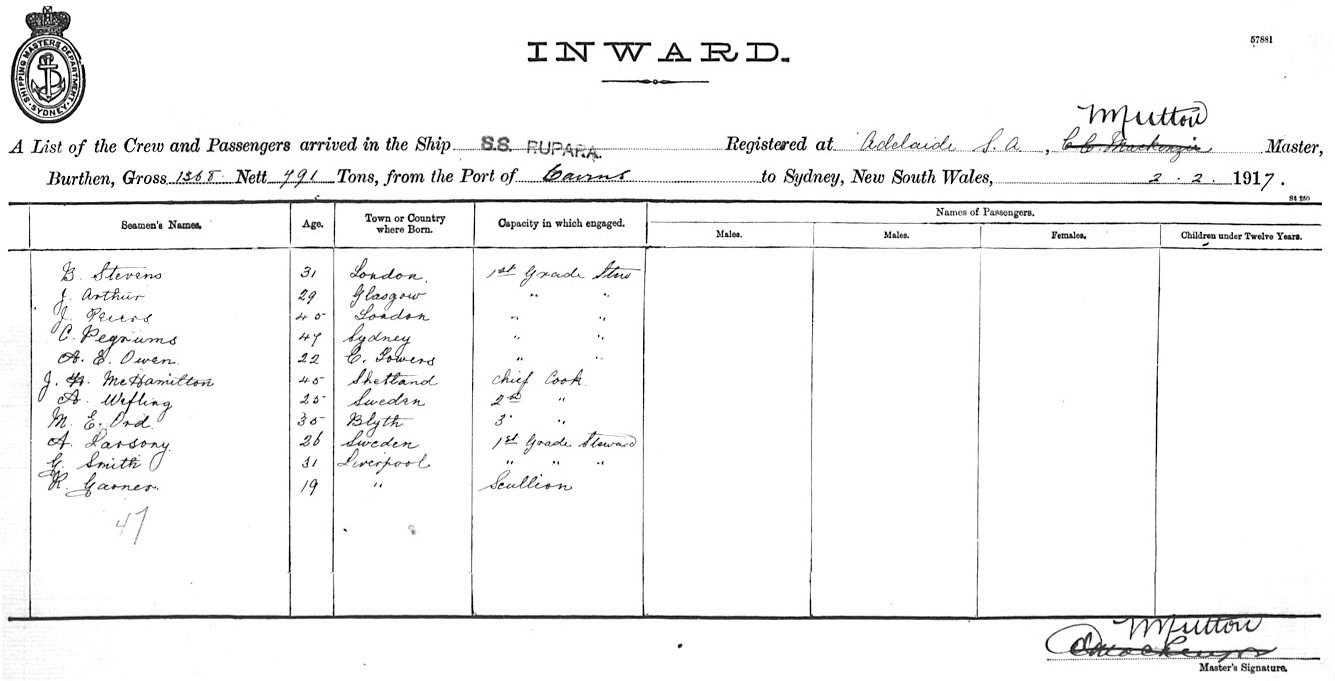 SHIPPING MASTERS DEPARTMENT. SYDNEY
INWARD.
57881
Mutton
A List of the Crew and Passengers arrived in the Ship S.S. RUPARA. Registered at Adelaide S. A, C C Mackenzie Master,
Burthen, Gross 1368 Nett 791 Tons, from the Port of Cairns to Sydney, New South Wales, 2 . 2 . 1917.
St 250
Seamen's Names. Age. Town or Country where Born. Capacity in which engaged. Names of Passengers.
Males. Males. Females. Children under Twelve Years.
B. Stevens 31 London 1st Grade Stew
J. Arthur 29 Glasgow " "
J. 45 London " "
C. Pegrums 47 Sydney " "
A. E. Owen 22 C. Towers " "
J. McHamilton 45 Shetland Chief Cook
A. Wefling 25 Sweden 2nd "
M. E. Ord. 35 Blyth 3 "
A. Larsony 26 Sweden 1st Grade Steward
G. Smith 31 Liverpool " " "
R. Garner 19 " Scullion
47
Mutton
Master's Signature.